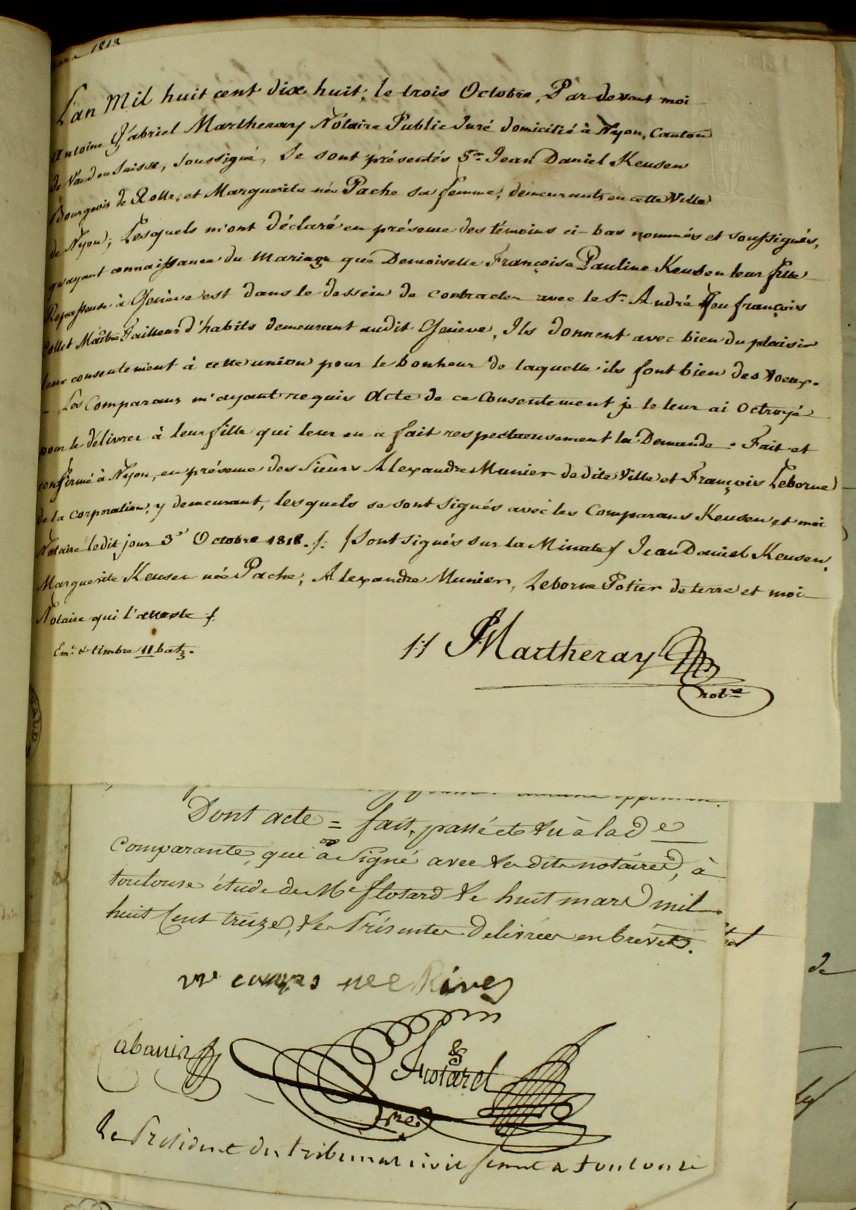 1818
L'an Mil huit cent dix huit; le trois Octobre, Par devant moi
Antoine Gabriel Martheray Notaire Public Juré domicilié à Nyon, Canton
de Vaud en Suisse, soussigné, Se sont présentés Sr. Jean Daniel Keusen
Bourgeois de Rolle, et Marguerite née Pache sa femme, demeurants en cette Ville
de Nyon; Lesquels m'ont déclaré en présence des témoins ci-bas nommés et soussignés,
qu'ayant connaissance du Mariage que Demoiselle Françoise Pauline Keusen leur fille
à Genève est dans le dessein de contracter avec le Sr. André françois
Maître Tailleur d'habits demeurant audit Genève, Ils donnent avec bien du plaisir
leur consentement à cette union pour le bonheur de laquelle ils font bien des voeux.
Les Comparans m'ayant requis Acte de ce Consentement je le leur ai Octroyé
pour le délivrer à leur fille qui leur en a fait respectueusement la Demande. Fait et
confirmé à Nyon, en présence des Sieurs Alexandre Munier de dite Ville et François Leborne
de la Corporation, y demeurant, lesquels se sont signés avec les Comparans Keusen et moi
Notaire ledit jour 3e Octobre 1818. /. / Sont signés sur la Minute / Jean Daniel Keusen,
Marguerite Keusen née Pache, Alexandre Munier, Leborne Potier de terre et moi
Notaire qui l'atteste /
Emt. & timbre 11 batz.
Martheray
notre
Dont acte = fait, passé et lu à la de
comparante, qui a signé avec les dits notaires, à
toulouse étude de Me flotard le huit mars mil
huit Cent treize, les présentes délivrées en brevet.
ve née Rives
Cabanis
flotard
nre
Le Président du tribunal civil séant à toulouse
de